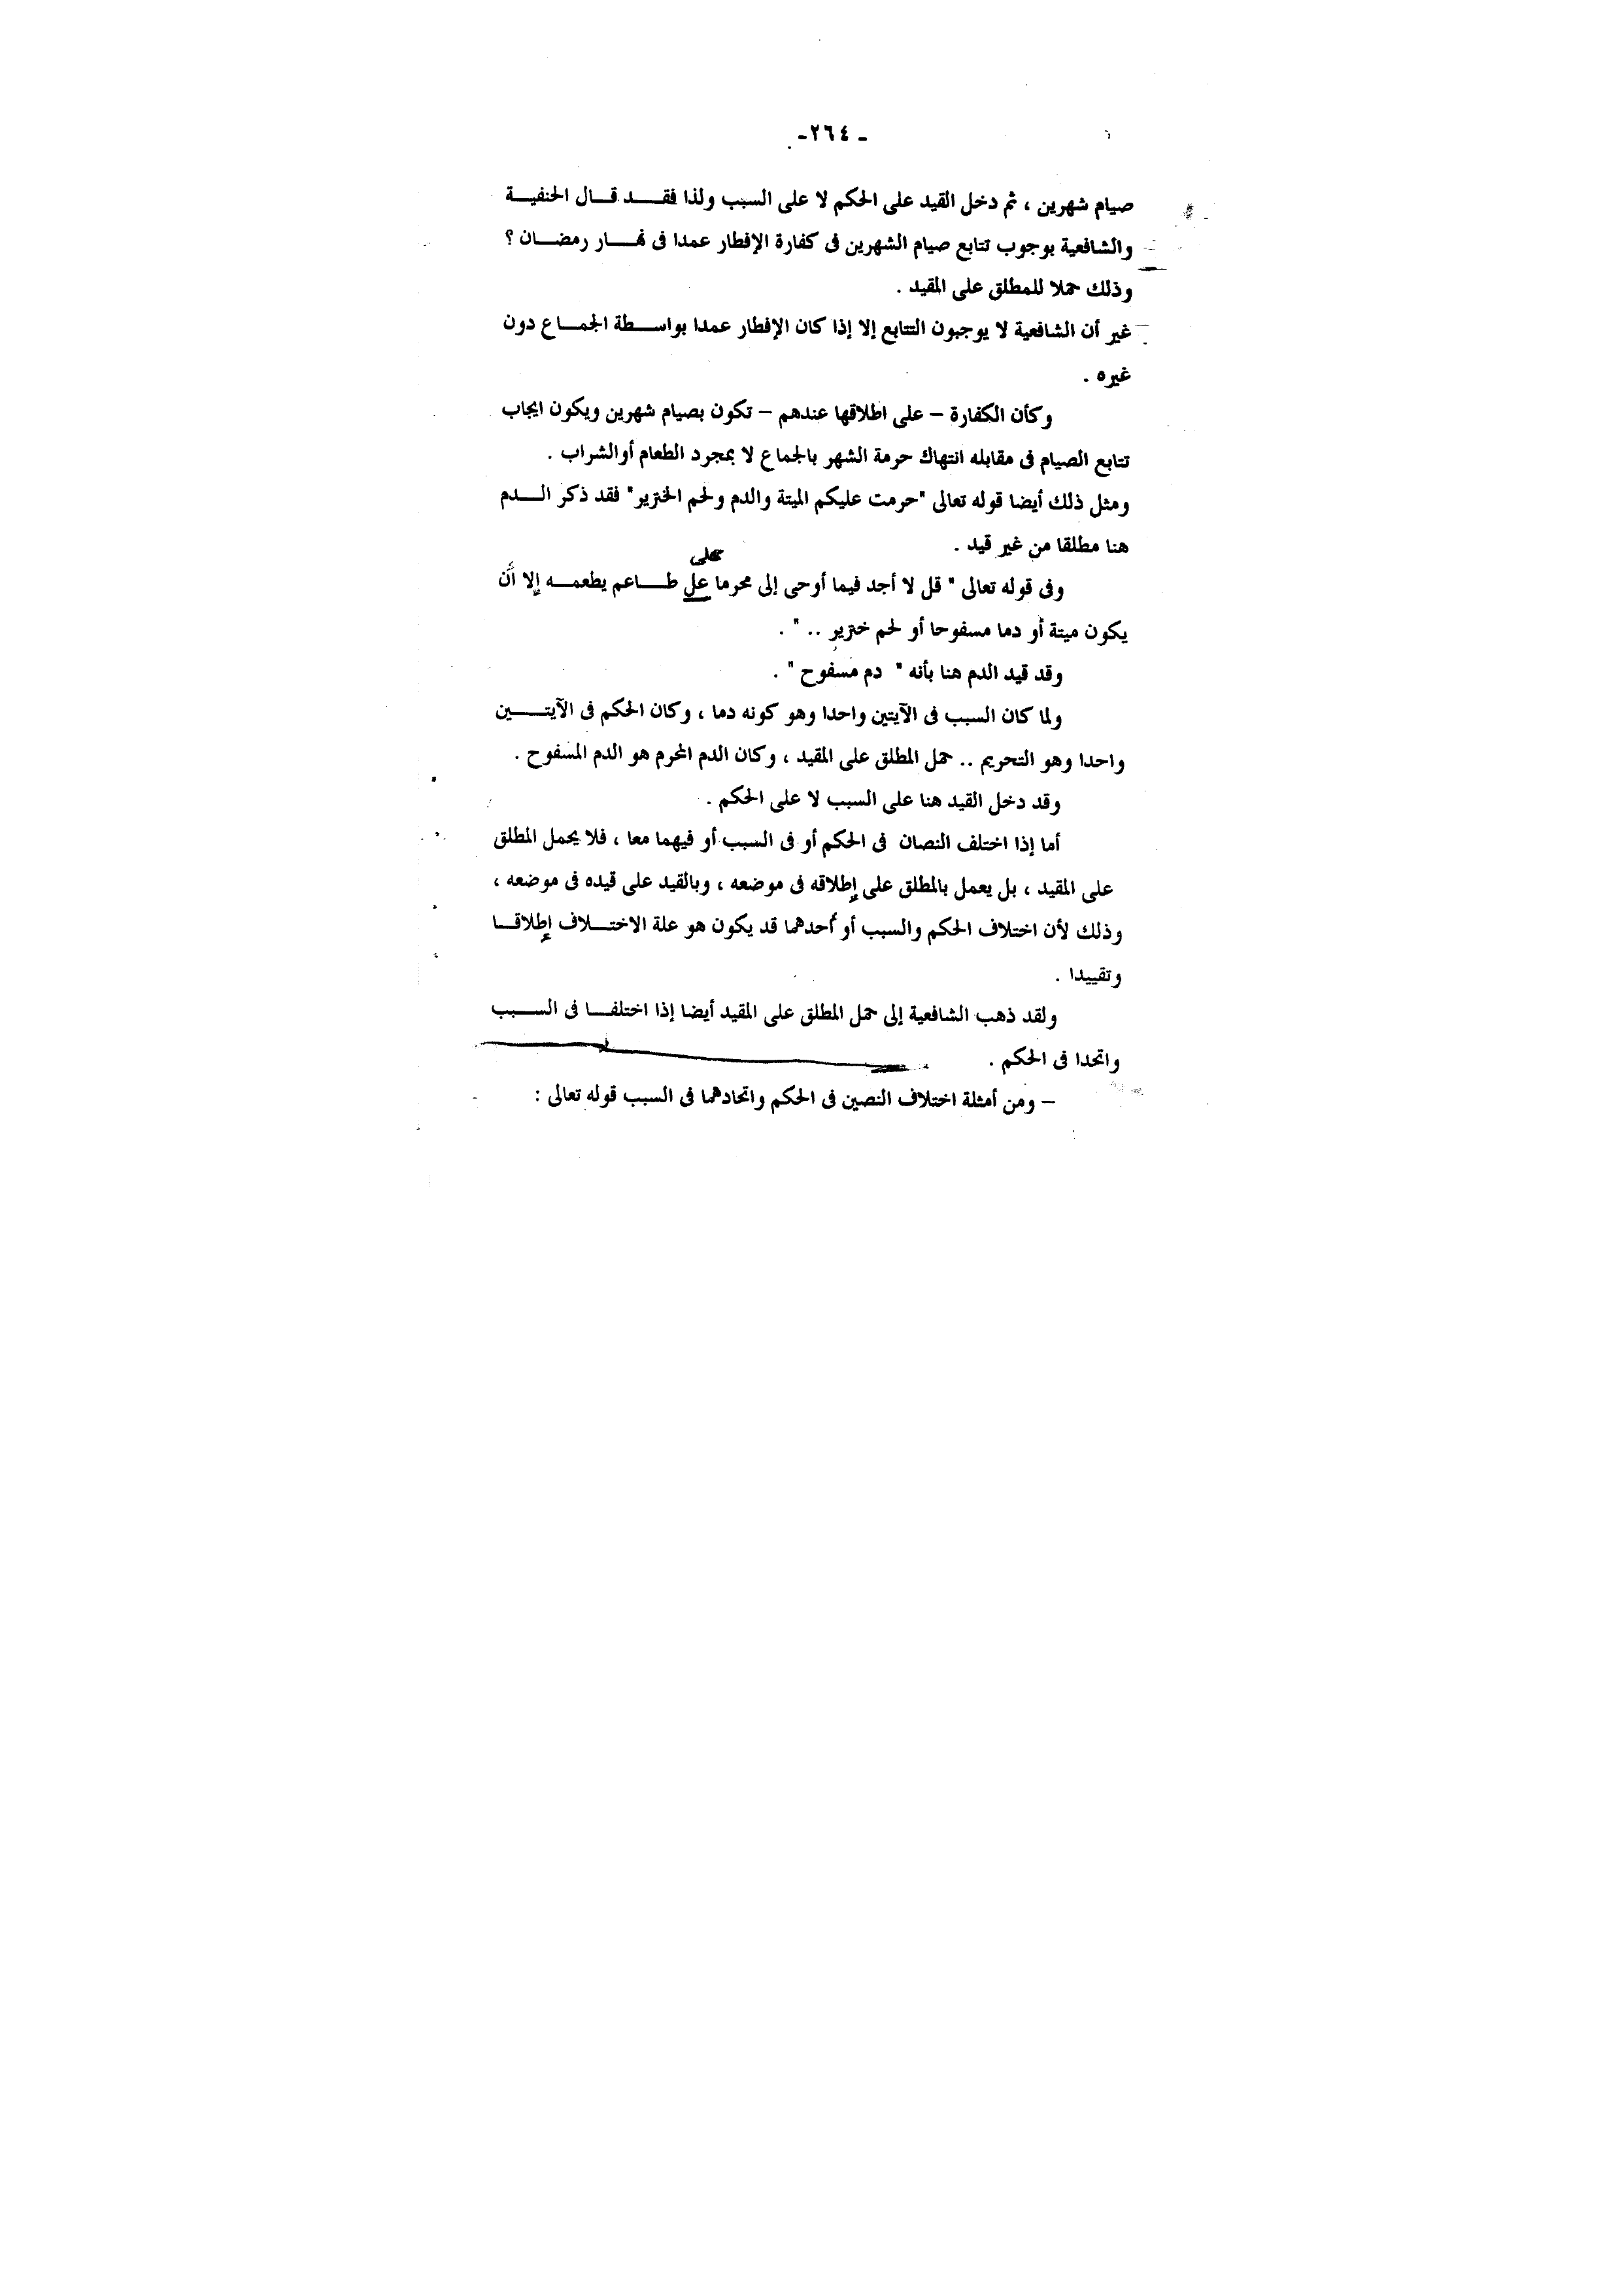 - ٢٦٤-
صيام شهرين ، ثم دخل القيد على الحكم لا على السبب ولذا فقد قال الحنفية
والشافعية بوجوب تتابع صيام الشهرين فى كفارة الإفطار عمدا فى نهار رمضان ؟
وذلك حملا للمطلق على المقيد .
غير أن الشافعية لا يوجبون التتابع إلا إذا كان الإفطار عمدا بواسطة الجماع دون
غيره .
وكأن الكفارة – على اطلاقها عندهم – تكون بصيام شهرين ويكون ايجاب
تتابع الصيام فى مقابله انتهاك حرمة الشهر بالجماع لا بمجرد الطعام أوالشراب .
ومثل ذلك أيضا قوله تعالى "حرمت عليكم الميتة والدم ولحم الخنزير" فقد ذكر الدم
هنا مطلقا من غير قيد .
على
وفى قوله تعالى " قل لا أجد فيما أوحى إلى محرما عل طاعم يطعمه إلا أن
يكون ميتة أو دما مسفوحا أو لحم خنزير .. " .
وقد قيد الدم هنا بأنه " دم مسفوح " .
ولما كان السبب فى الآيتين واحدا وهو كونه دما ، وكان الحكم فى الآيتين
واحدا وهو التحريم .. حمل المطلق على المقيد ، وكان الدم المحرم هو الدم المسفوح .
وقد دخل القيد هنا على السبب لا على الحكم .
أما إذا اختلف النصان فى الحكم أو فى السبب أو فيهما معا ، فلا يحمل المطلق
على المقيد ، بل يعمل بالمطلق على إطلاقه فى موضعه ، وبالقيد على قيده فى موضعه ،
وذلك لأن اختلاف الحكم والسبب أو أحدهما قد يكون هو علة الاختلاف إطلاقا
وتقييدا .
ولقد ذهب الشافعية إلى حمل المطلق على المقيد أيضا إذا اختلفا فى السبب
واتحدا فى الحكم .
– ومن أمثلة اختلاف النصين فى الحكم واتحادهما فى السبب قوله تعالى :